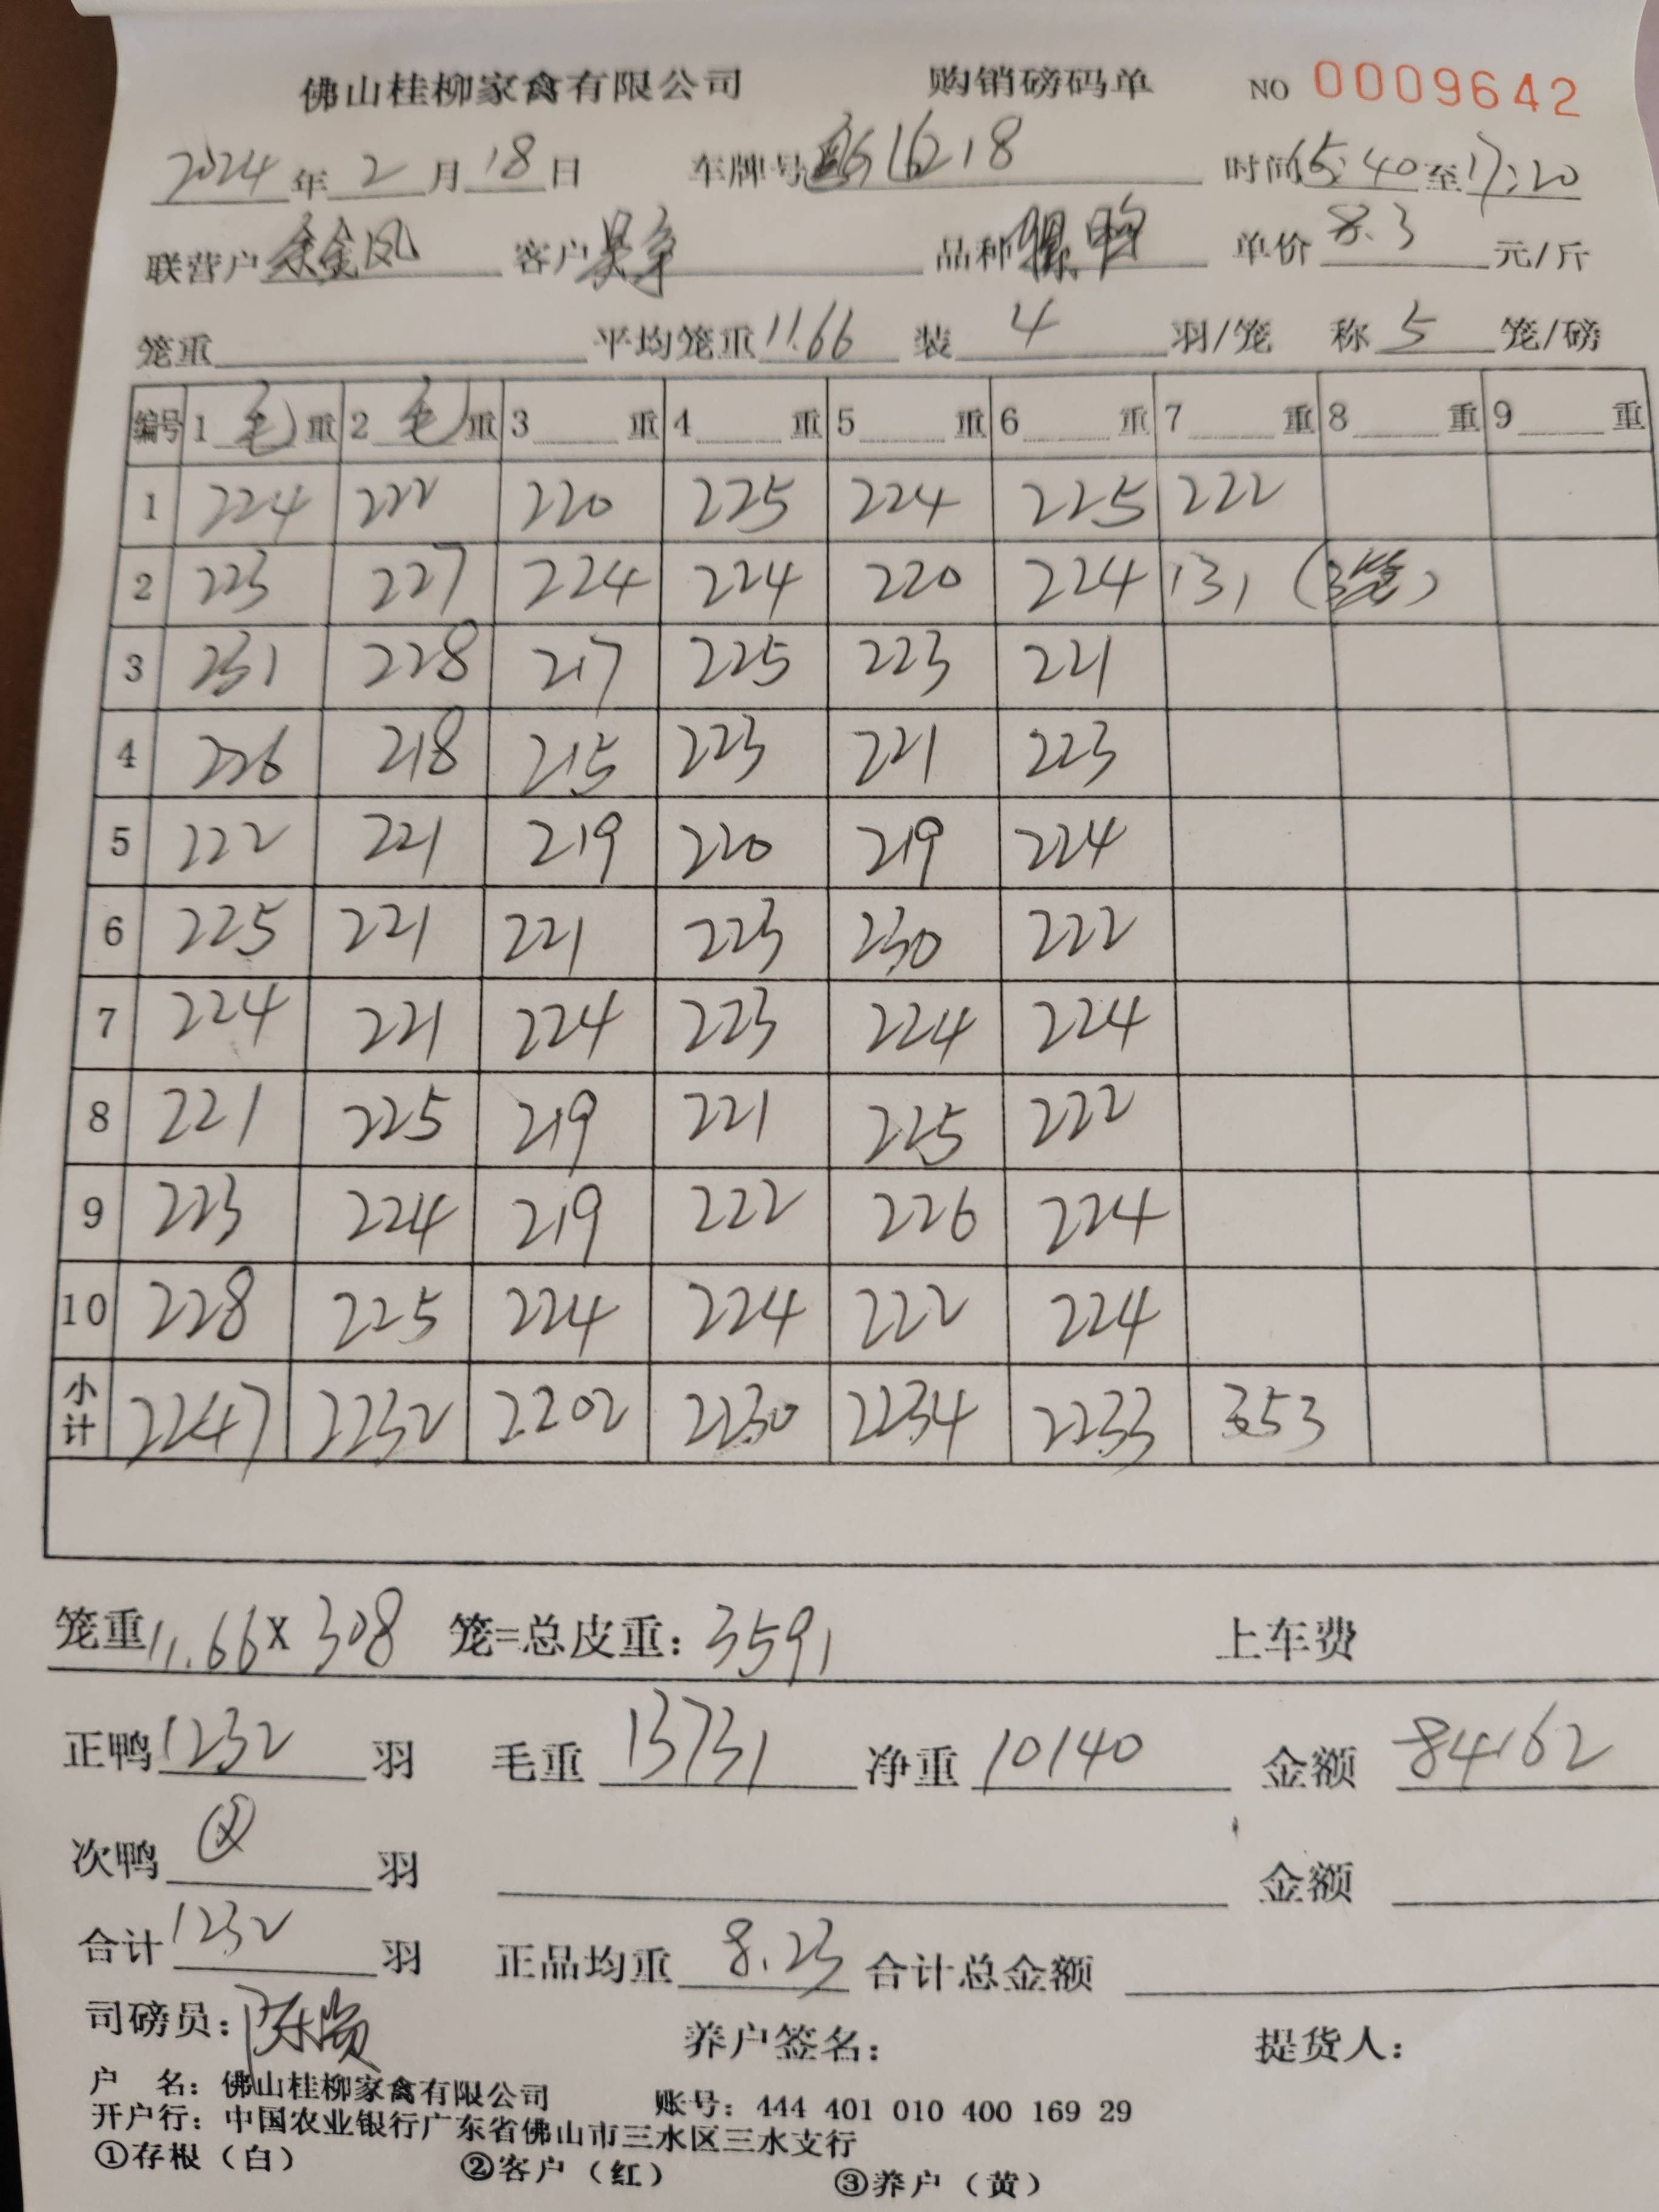 佛山桂柳家禽有限公司 购销磅码单 NO 0009642
2024年2月18日 车牌号 16218 时间15:40至17:20
联营户余金凤 客户吴争 品种 鸭 单价8.3元/斤
笼重 平均笼重11.66 装4羽/笼 称5笼/磅
编号 1毛重 2毛重 3 重 4 重 5 重 6 重 7 重 8 重 9 重
1 224 222 220 225 224 225 222
2 223 227 224 224 220 224 131(3笼)
3 231 228 217 225 223 221
4 226 218 215 223 221 223
5 222 221 219 220 219 224
6 225 221 221 223 230 222
7 224 221 224 223 224 224
8 221 225 219 221 225 222
9 223 224 219 222 226 224
10 228 225 224 224 222 224
小计 2247 2232 2202 2230 2234 2233 353
笼重11.66X308 笼=总皮重:3591 上车费
正鸭1232羽 毛重13731 净重10140 金额84162
次鸭 羽 金额
合计1232羽 正品均重8.23 合计总金额
司磅员: 养户签名: 提货人:
户 名:佛山桂柳家禽有限公司 账号:444 401 010 400 169 29
开户行:中国农业银行广东省佛山市三水区三水支行
①存根(白) ②客户(红) ③养户(黄)